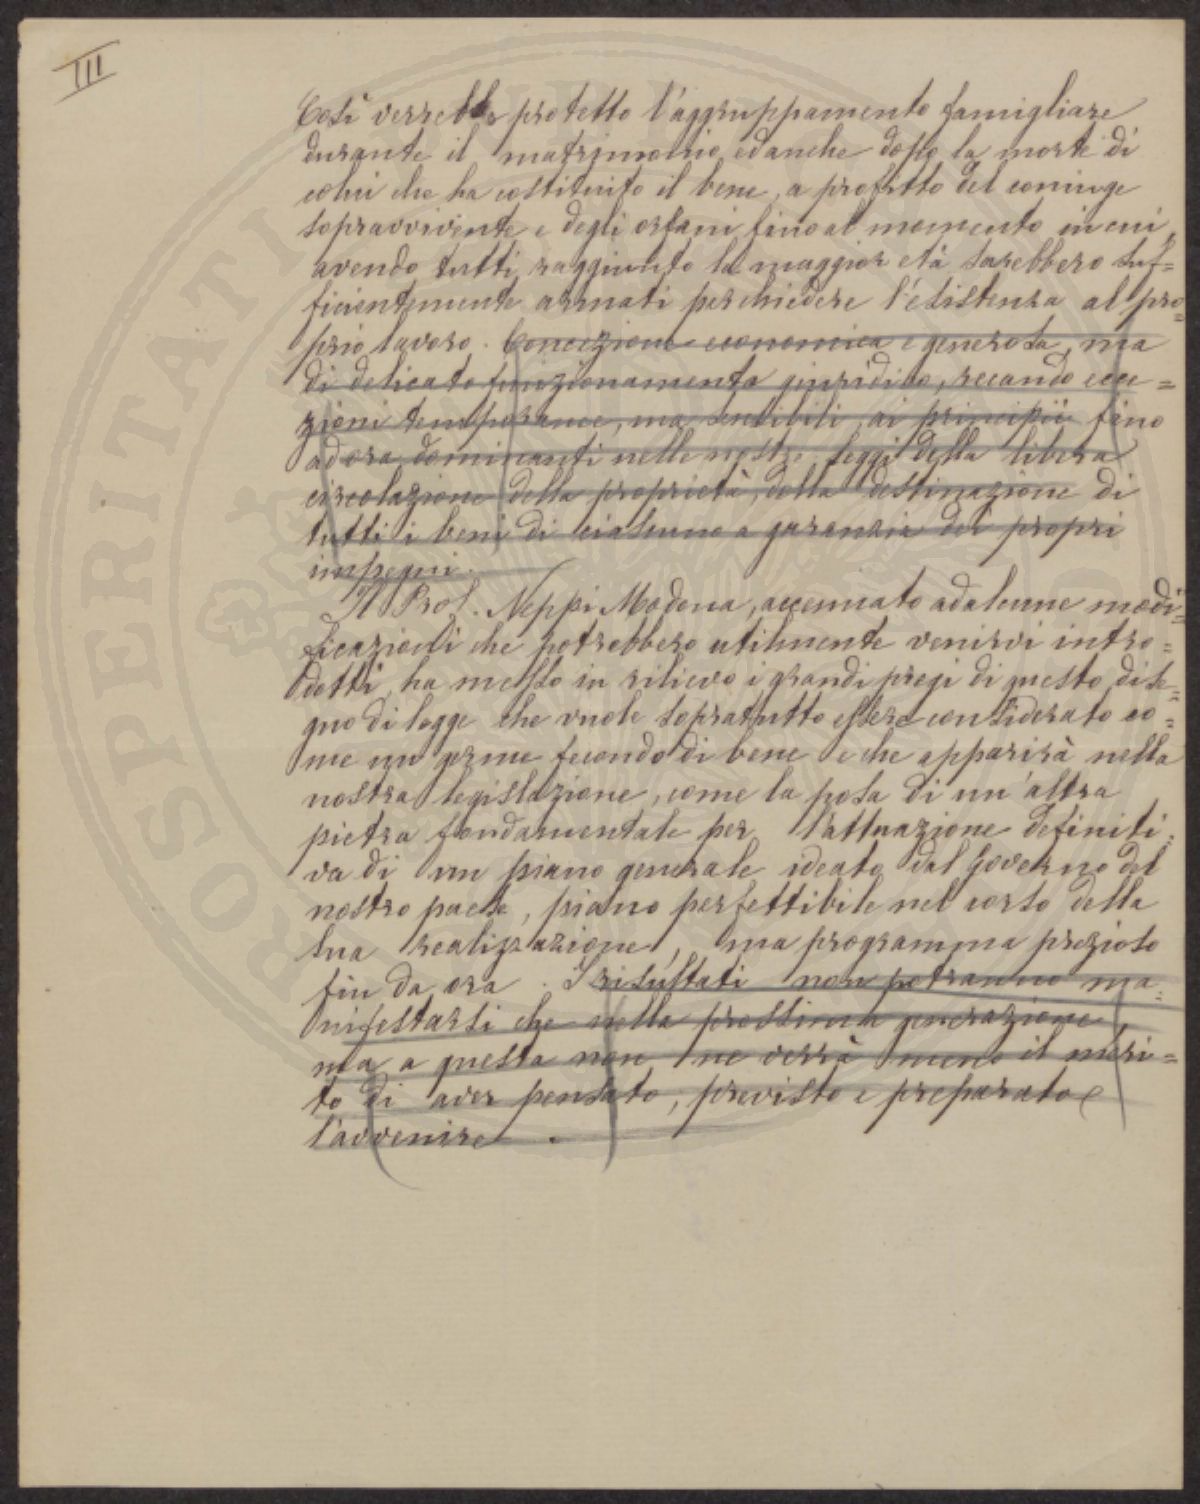 III
Così verrebbe protetto l'aggruppamento famigliare
durante il matrimonio ed anche dopo la morte di
colui che ha costituito il bene, a profitto del coniuge
sopravvivente e degli orfani fino al momento in cui,
avendo tutti raggiunto la maggior età sarebbero suf=
ficientemente armati per chiedere l'esistenza al pro=
prio lavoro. Concezione economica e generosa, ma
di delicato funzionamento giuridico, recando ecce=
zioni temporanee, ma sensibili, ai principii fino
ad ora dominanti nelle nostre leggi della libera
circolazione della proprietà, della destinazione di
tutti i beni di ciascuno a garanzia dei propri
impegni.
Il Prof. Neppi Modona, accennato ad alcune modi=
ficazioni che potrebbero utilmente venirvi intro=
dotti, ha messo in rilievo i grandi pregi di questo dise=
gno di legge che vuole sopratutto essere considerato co=
me un germe fecondo di bene e che apparirà nella
nostra legislazione, come la posa di un'altra
pietra fondamentale per l'attuazione definiti=
va di un piano generale ideato dal Governo del
nostro paese, piano perfettibile nel corso della
sua realizzazione, ma programma prezioso
fin da ora. I risultati non potranno ma=
nifestarsi che nella prossima generazione,
ma a questa non ne verrà meno il meri=
to di aver pensato, previsto e preparato
l'avvenire.
PROSPERITATI PUBLICAE